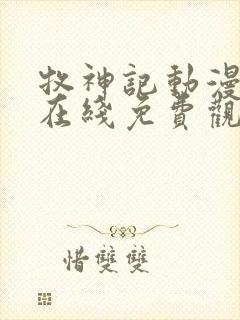 牧神記動漫
在綫免費觀
惜雙雙